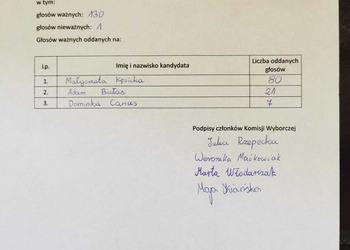 w tym:
głosów ważnych: 130
głosów nieważnych: 1
Głosów ważnych oddanych na:
Lp. Imię i nazwisko kandydata Liczba oddanych głosów
1. Małgorzata Kęsicka 80
2. Adam Białas 21
3. Dominika Carius 7
Podpisy członków Komisji Wyborczej
Julia Rzepecka
Weronika Maćkowiak
Marta Włodarczak
Maja